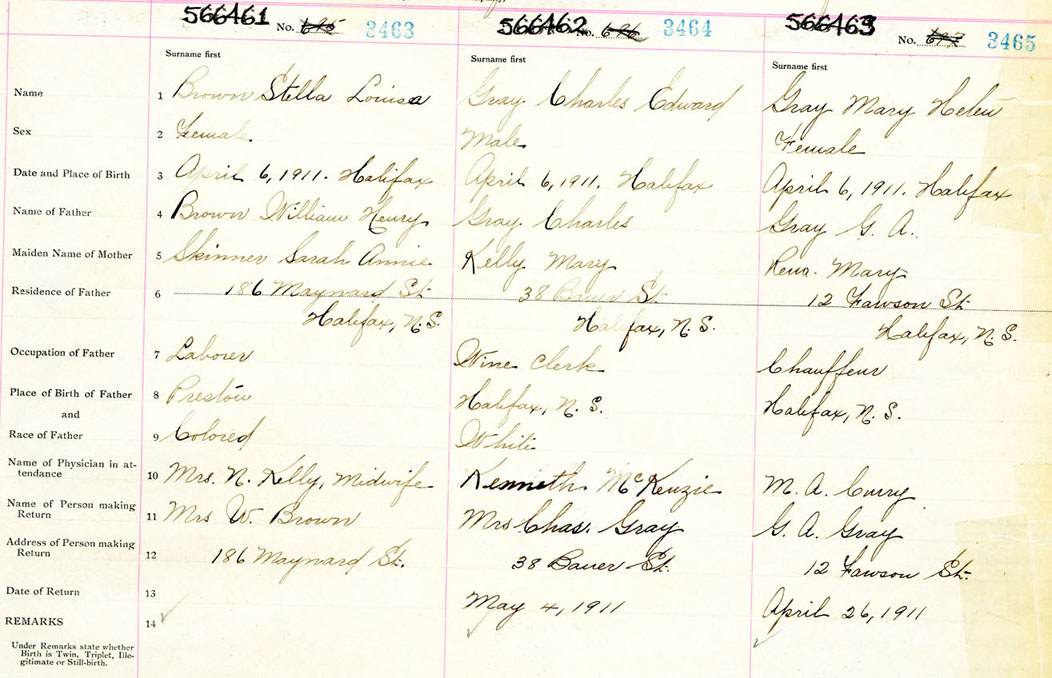 566461 No. 3463 566462 No. 696 3464 566463 No. 3465
Surname first Surname first Surname first
Name 1 Brown Stella Louisa Gray Charles Edward Gray Mary Helen
Sex 2 Female. Male Female
Date and Place of Birth 3 April 6, 1911. Halifax April 6, 1911. Halifax April 6, 1911. Halifax
Name of Father 4 Brown William Henry Gray Charles Gray G. A.
Maiden Name of Mother 5 Skinner Sarah Annie Kelly Mary Mary
Residence of Father 6 186 Maynard St. 38 Bauer St. 12 Fawson St.
Halifax, N.S. Halifax, N.S. Halifax, N.S.
Occupation of Father 7 Laborer Wine Clerk Chauffeur
Place of Birth of Father 8 Preston Halifax, N.S. Halifax, N.S.
and
Race of Father 9 Colored White
Name of Physician in at-
tendance 10 Mrs. N. Kelly, Midwife Kenneth McKenzie M. A. Curry
Name of Person making
Return 11 Mrs W. Brown Mrs Chas. Gray G. A. Gray
Address of Person making
Return 12 186 Maynard St. 38 Bauer St. 12 Fawson St.
Date of Return 13 May 4, 1911 April 26, 1911
REMARKS 14
Under Remarks state whether
Birth is Twin, Triplet, Ille-
gitimate or Still-birth.